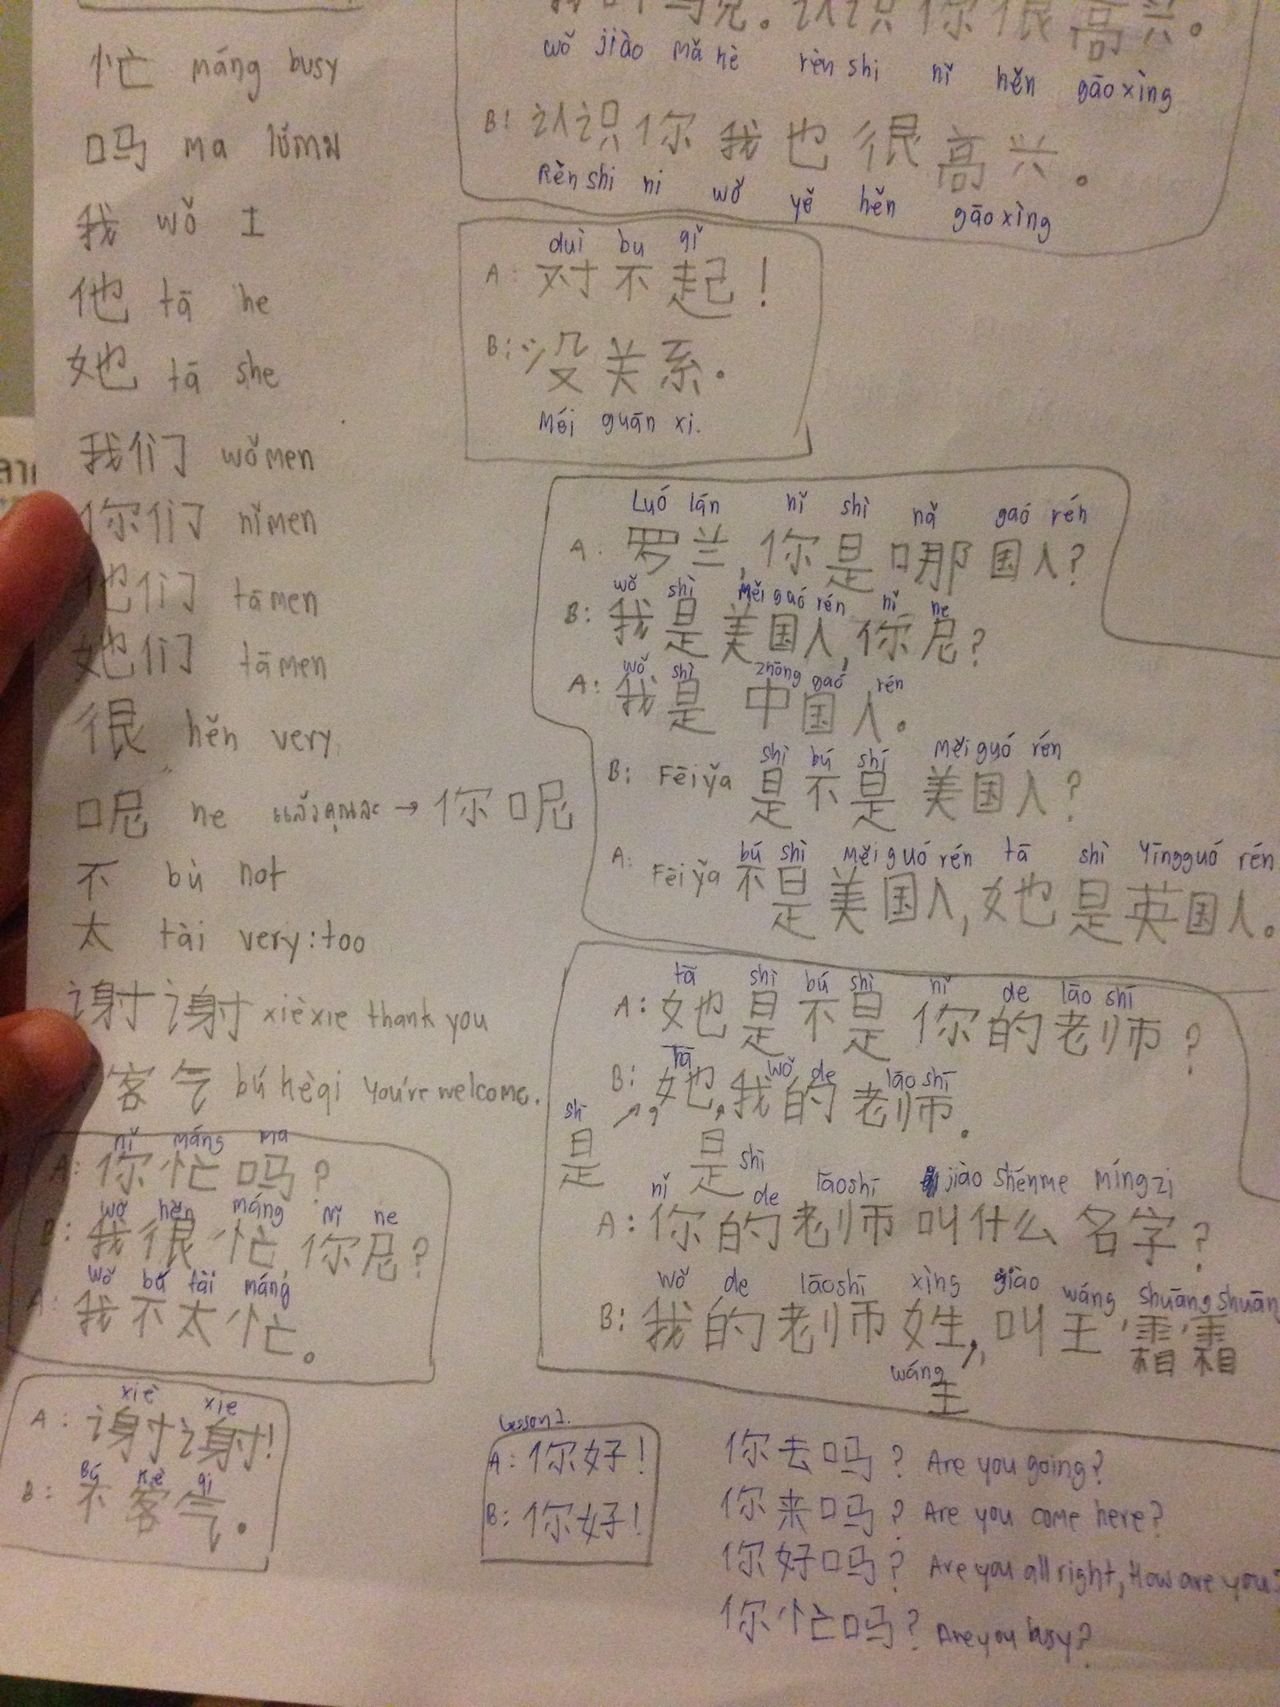 忙 máng busy
吗 ma ใช้ถาม
我 wǒ I
他 tā he
她 tā she
我们 wǒmen
你们 nǐmen
他们 tāmen
她们 tāmen
很 hěn very
呢 ne แล้วคุณละ → 你呢
不 bù not
太 tài very:too
谢谢 xièxie thank you
客气 bú kèqi you're welcome.
nǐ máng ma
A: 你忙吗?
wǒ hěn máng, nǐ ne
B: 我很忙,你尼?
wǒ bú tài máng
A: 我不太忙。
xiè xie
A: 谢谢!
Bú kè qi
B: 不客气。
我叫马克。认识你很高兴。
wǒ jiào mǎ kè rèn shi nǐ hěn gāoxìng
B: 认识你我也很高兴。
Rèn shi ni wǒ yě hěn gāoxìng
duì bu qǐ
A: 对不起!
B: 没关系.
Méi guān xi.
Luó lán nǐ shì nǎ gaó rén
A. 罗兰,你是哪国人?
wǒ shì Měi gaó rén, nǐ ne
B: 我是美国人,你尼?
wǒ shì zhōng gaó rén
A: 我是 中国人。
shì bú shí Měiguó rén
B: Fēiyǎ 是不是 美国人?
bú shì Měiguó rén tā shì Yīngguó rén
A: Fēiyǎ 不是美国人,她是英国人。
tā shì bú shì nǐ de lǎo shī
A: 她是不是你的老师?
tā wǒ de lǎo shī
B: 她,我的老师.
shì 是 是 shì
nǐ de lāoshī jiào shénme míngzi
A: 你的老师叫什么名字?
wǒ de lāoshī xìng jiào wáng shuāng shuān
B: 我的老师姓,叫王霜霜
wáng
王
Lesson 1.
A: 你好!
B: 你好!
你去吗? Are you going?
你来吗? Are you come here?
你好吗? Are you all right, How are you?
你忙吗? Are you busy?